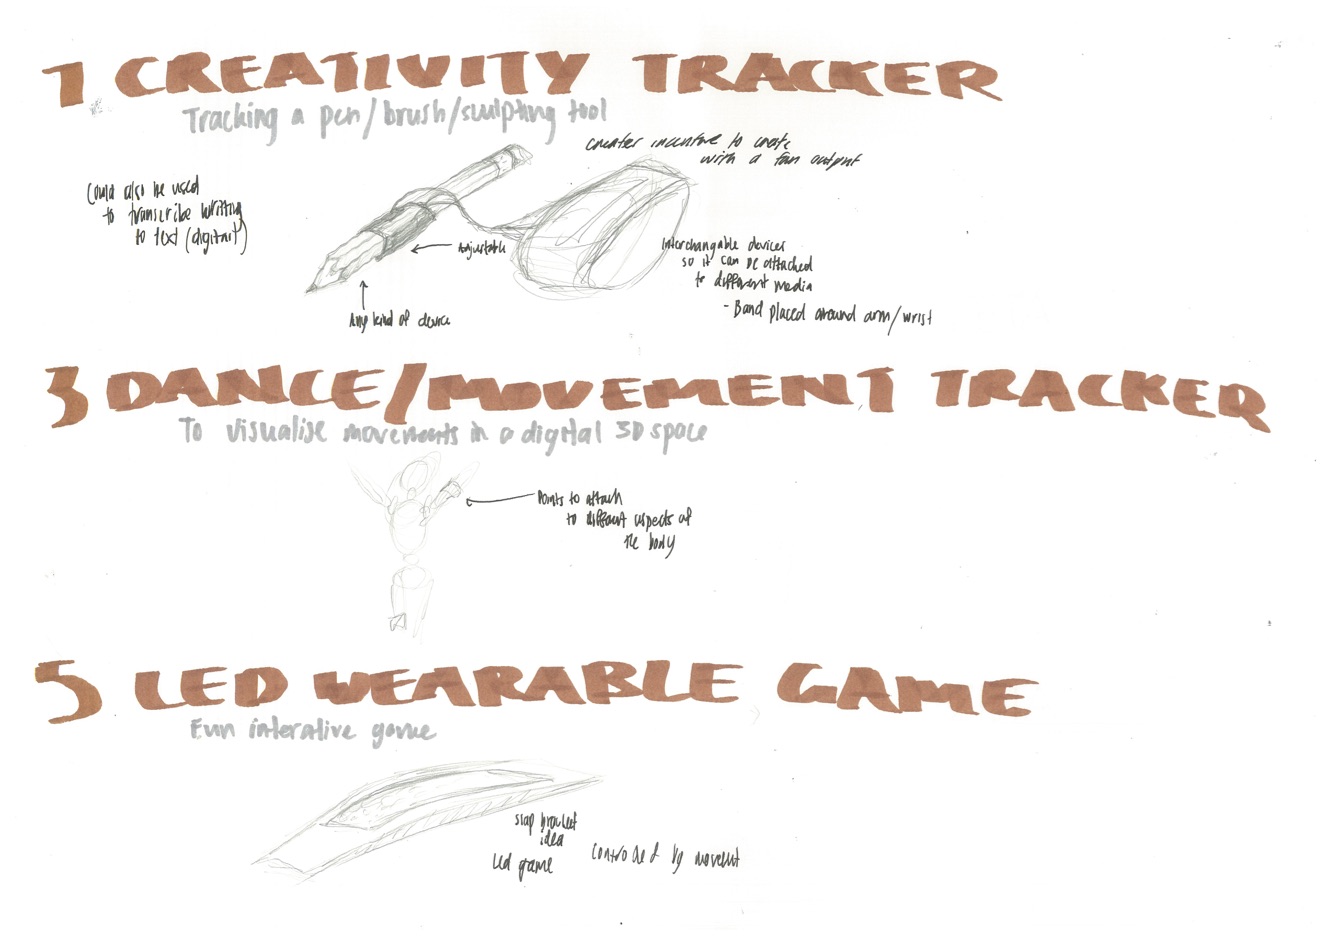 1 CREATIVITY TRACKER
Tracking a pen/brush/sculpting tool
creates incentive to create
with a fun output
Could also be used
to transcribe writing
to text (digital)
Adjustable
Any kind of device
Interchangable devices
so it can be attached
to different media
- Band placed around arm/wrist
3 DANCE/MOVEMENT TRACKER
To visualise movements in a digital 3D space
Points to attach
to different aspects of
the body
5 LED WEARABLE GAME
Fun interative game
slap bracket
idea
Led game
controlled by movemt